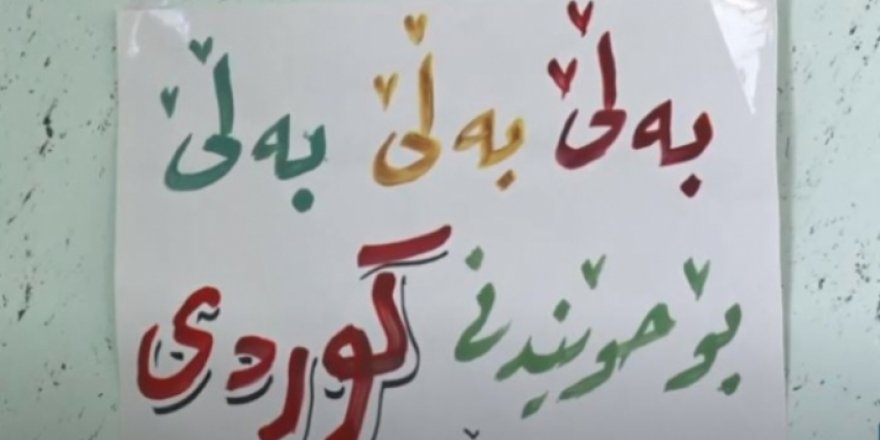 بەڵێ بەڵێ بەڵێ
بۆ خوێندنی کوردی